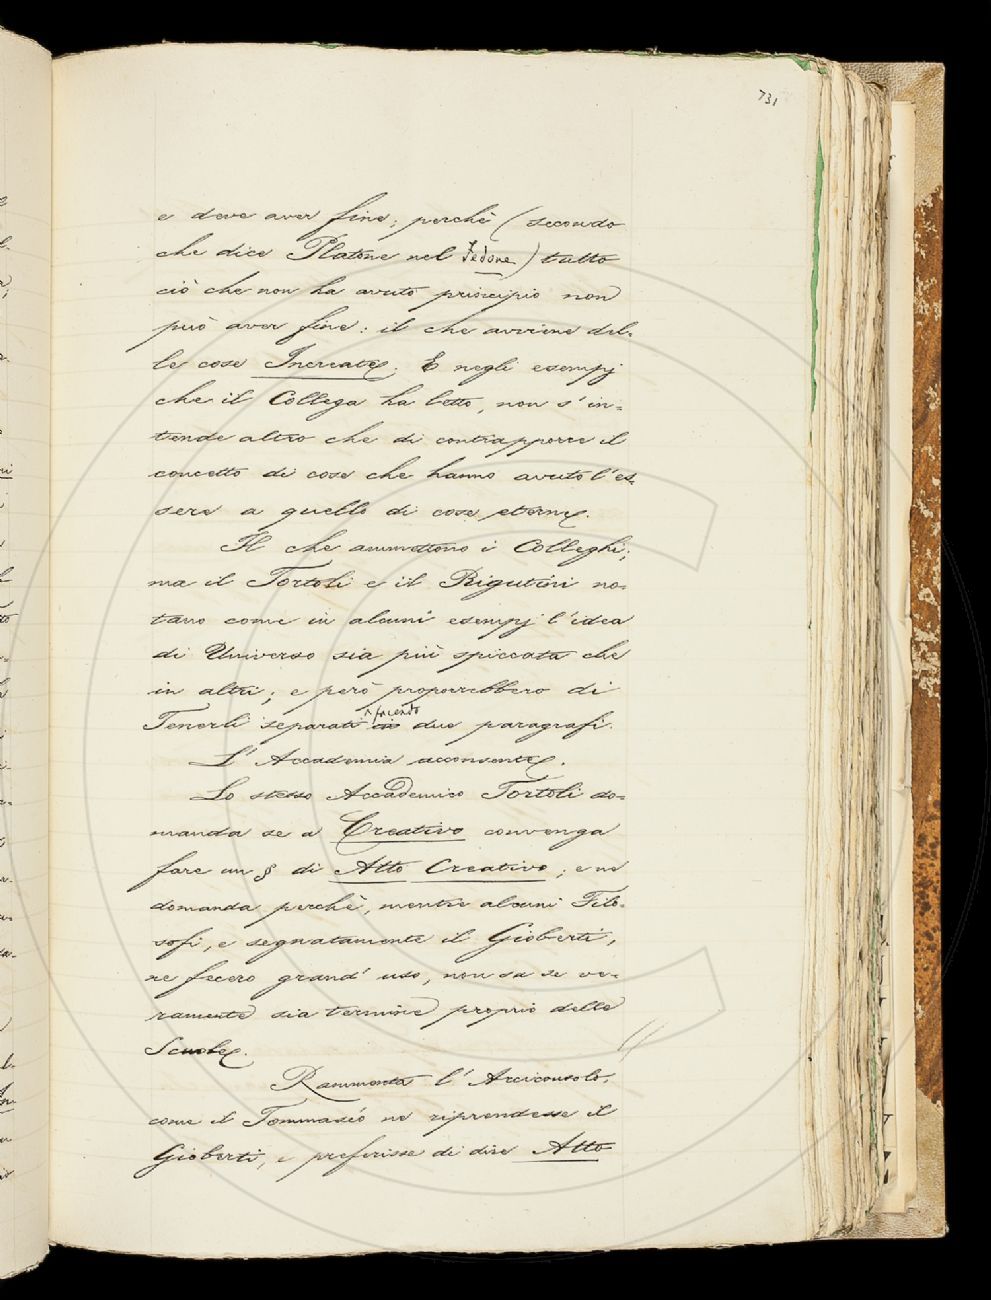 731
e deve aver fine; perchè (secondo
che dice Platone nel Fedone) tutto
ciò che non ha avuto principio non
può aver fine: il che avviene del-
le cose Increate. E negli esempj
che il Collega ha letto, non s'in-
tende altro che di contrapporre il
concetto di cose che hanno avuto l'es-
sere a quello di cose eterne.
Il che ammettono i Colleghi;
ma il Tortoli e il Rigutini no-
tano come in alcuni esempj l'idea
di Universo sia più spiccata che
in altri; e però proporrebbero di
Tenerli separati facendo due paragrafi.
L'Accademia acconsente.
Lo stesso Accademico Tortoli do-
manda se a Creativo convenga
fare un § di Atto Creativo; e ne
domanda perchè, mentre alcuni Filo-
sofi, e segnatamente il Gioberti,
ne fecero grand' uso, non sa se ve-
ramente sia termine proprio delle
Scuole.
Rammenta l'Arciconsolo,
come il Tommaséo ne riprendesse il
Gioberti, e preferisse di dire Atto